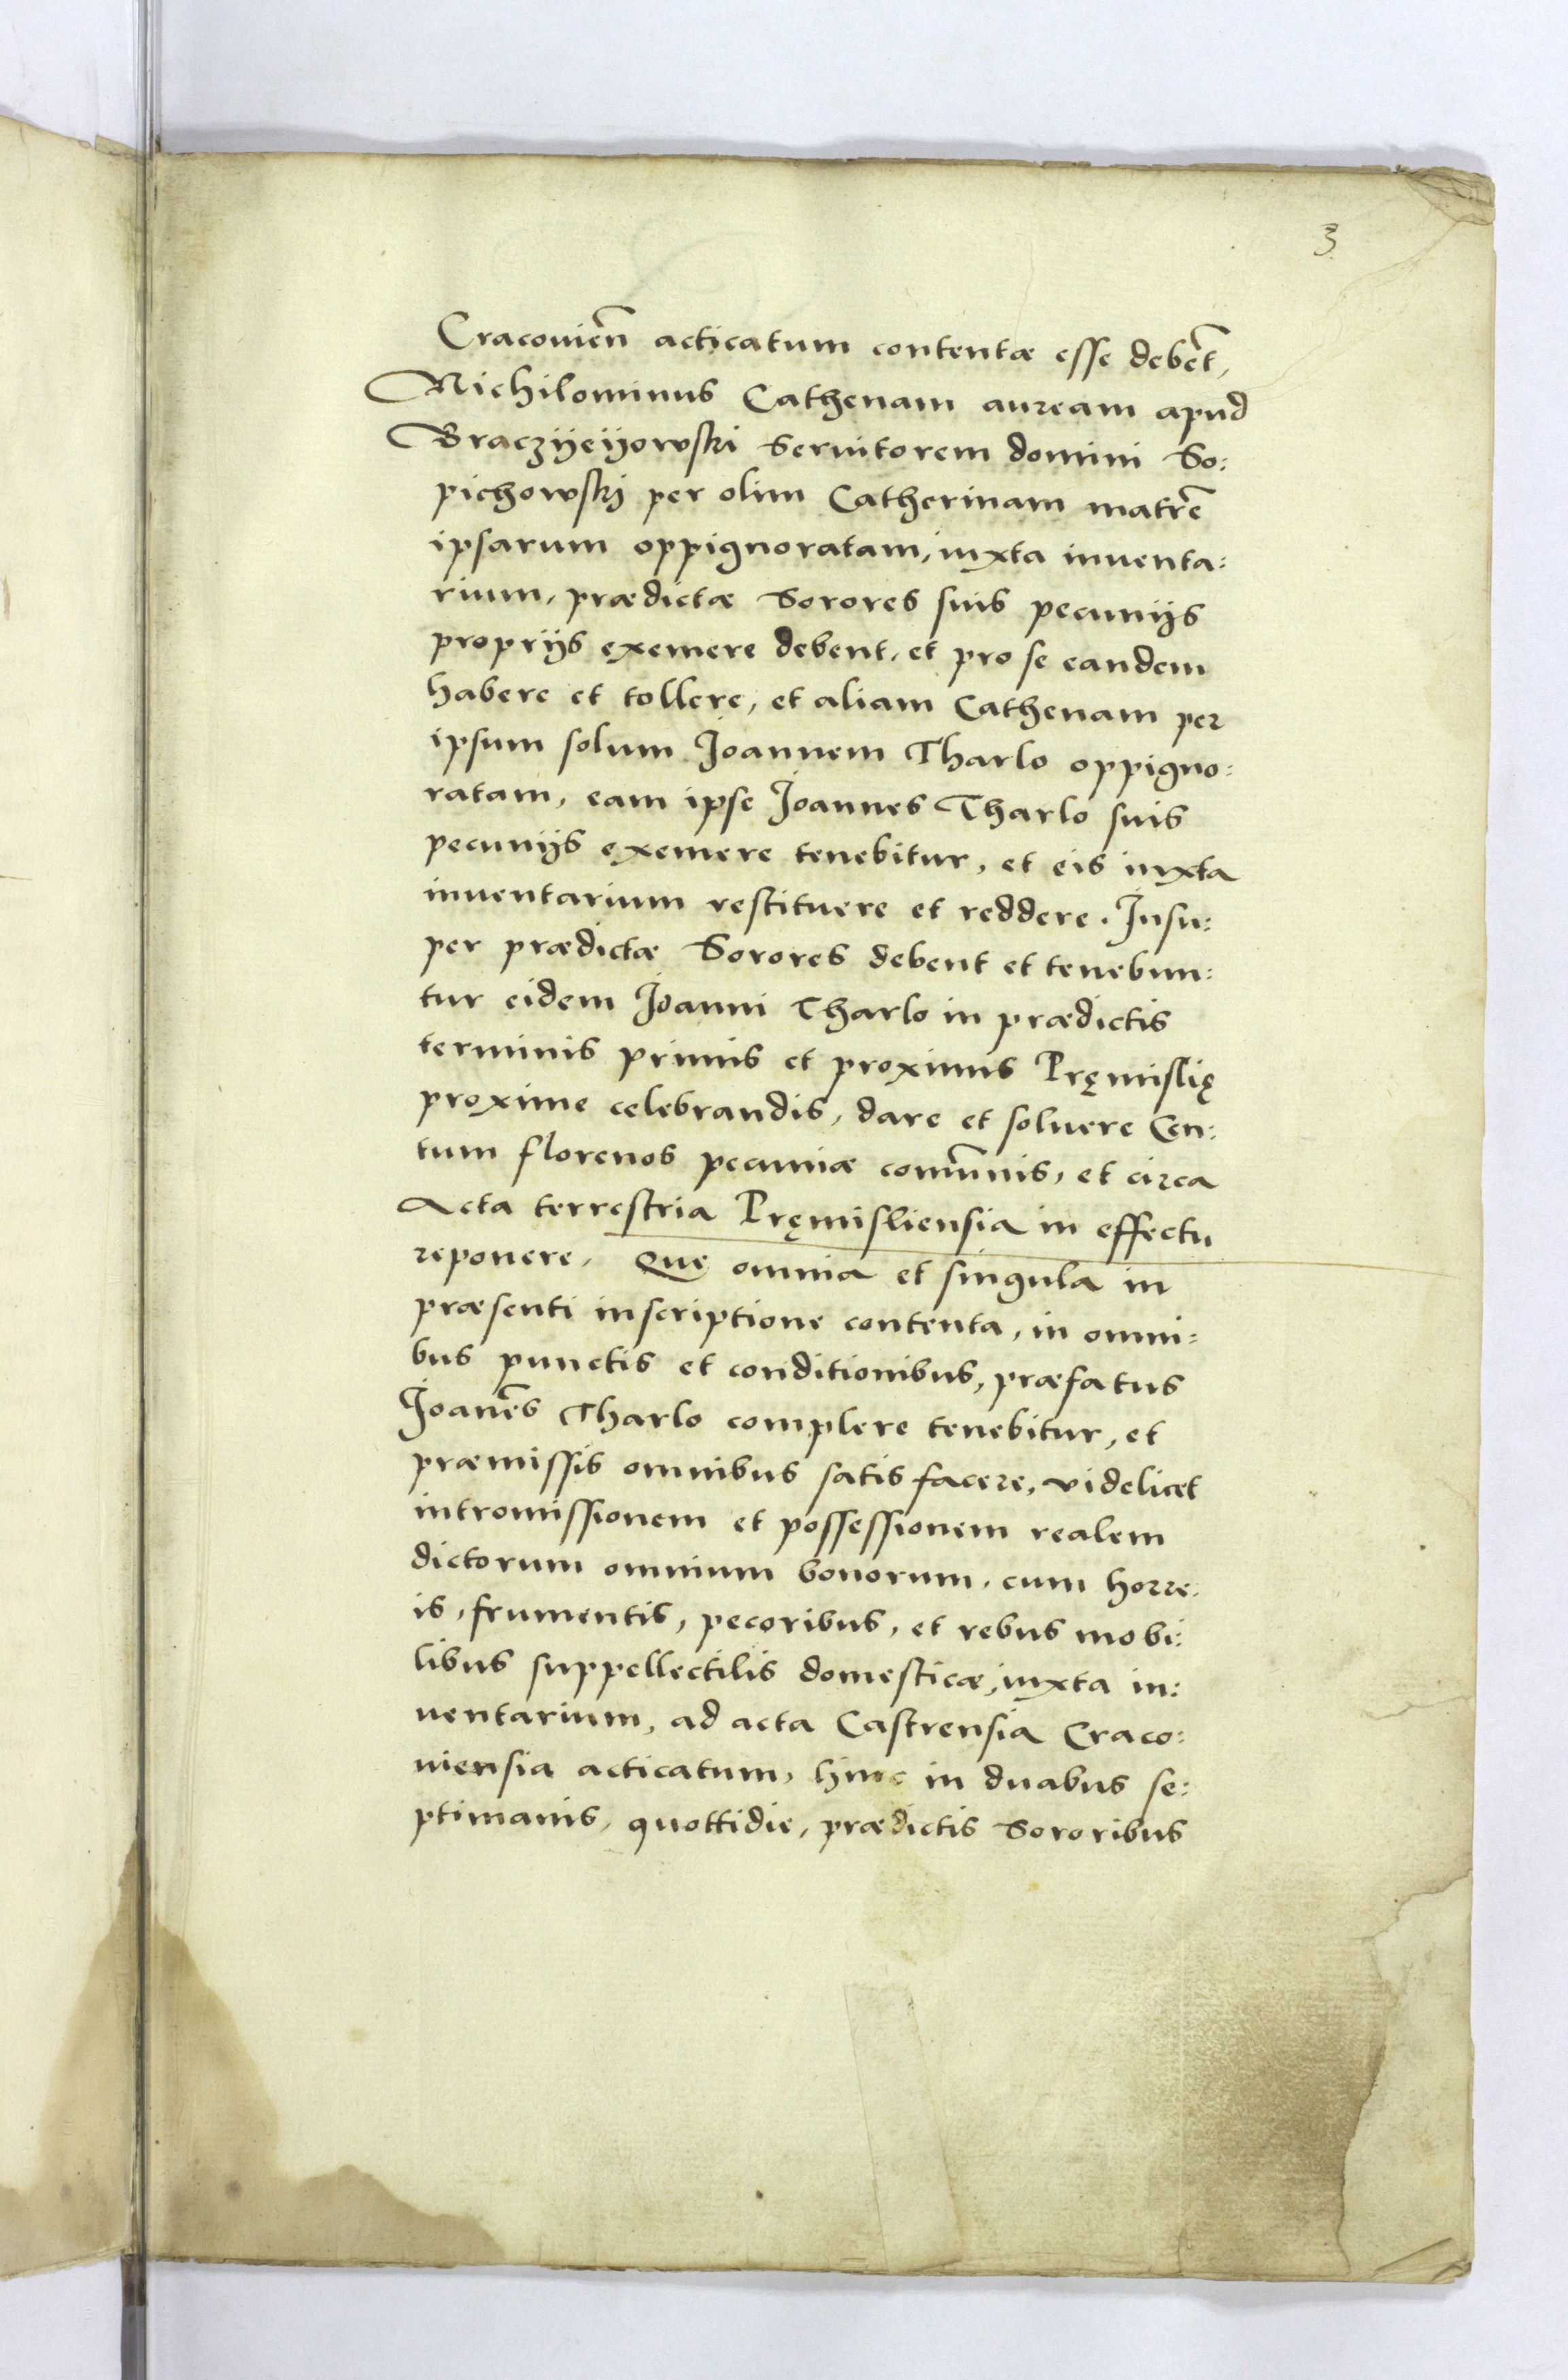 3
Cracovień acticatum contentæ esse debēt,
Nichilominus Cathenam auream apud
Braczÿeÿowski Seruitorem domini So:
pichowskj per olim Catherinam matrē
ipsarum oppignoratam, iuxta inuenta:
rium, prædictæ Sorores suis pecunijs
proprijs exemere debent, et pro se eandem
habere et tollere, et aliam Cathenam per
ipsum solum Joannem Tharlo oppigno:
ratam, eam ipse Joannes Tharlo suis
pecunijs exemere tenebitur, et eis iuxta
inuentarium restituere et reddere. Insu:
per prædictæ Sorores debent et tenebun:
tur eidem Joanni Tharlo in prædictis
terminis primis et proximis Pręmislię
proxime celebrandis, dare et soluere Cen:
tum florenos pecuniæ com̄unis, et circa
Acta terrestria Pręmisliensia in effectu
reponere. Quę omnia et singula in
præsenti inscriptione contenta, in omni:
bus punctis et conditionibus, præfatus
Joan̄es Tharlo complere tenebitur, et
præmissis omnibus satisfacere, videlicet
intromissionem et possessionem realem
dictorum omnium bonorum, cum horre:
is, frumentis, pecoribus, et rebus mobi:
libus suppellectilis domesticæ, iuxta in:
uentarium, ad acta Castrensia Craco:
uiensia acticatum, hinc in duabus se:
ptimanis, quottidie, prædictis Sororibus